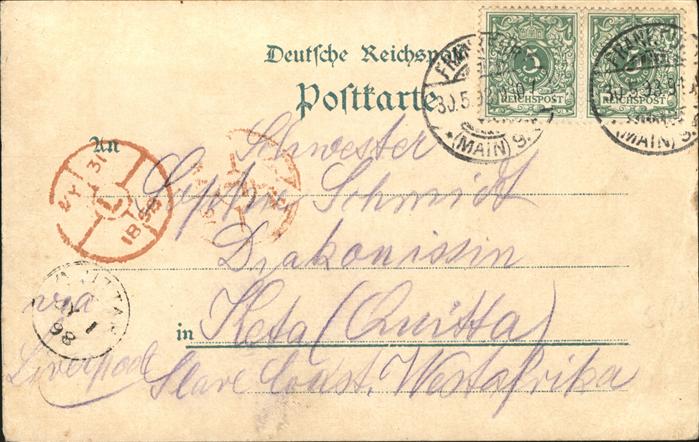 Deutsche Reichspost
Postkarte
5 5
REICHSPOST REICHSPOST
FRANKFURT
(MAIN) 9.
FRANKFURT
(MAIN) 9
An
Schwester
Schmidt
Diakonissin
in Keta (Quitta)
Slave Coast, Westafrika
via
Liverpool
MY 31
QUITTAH
98